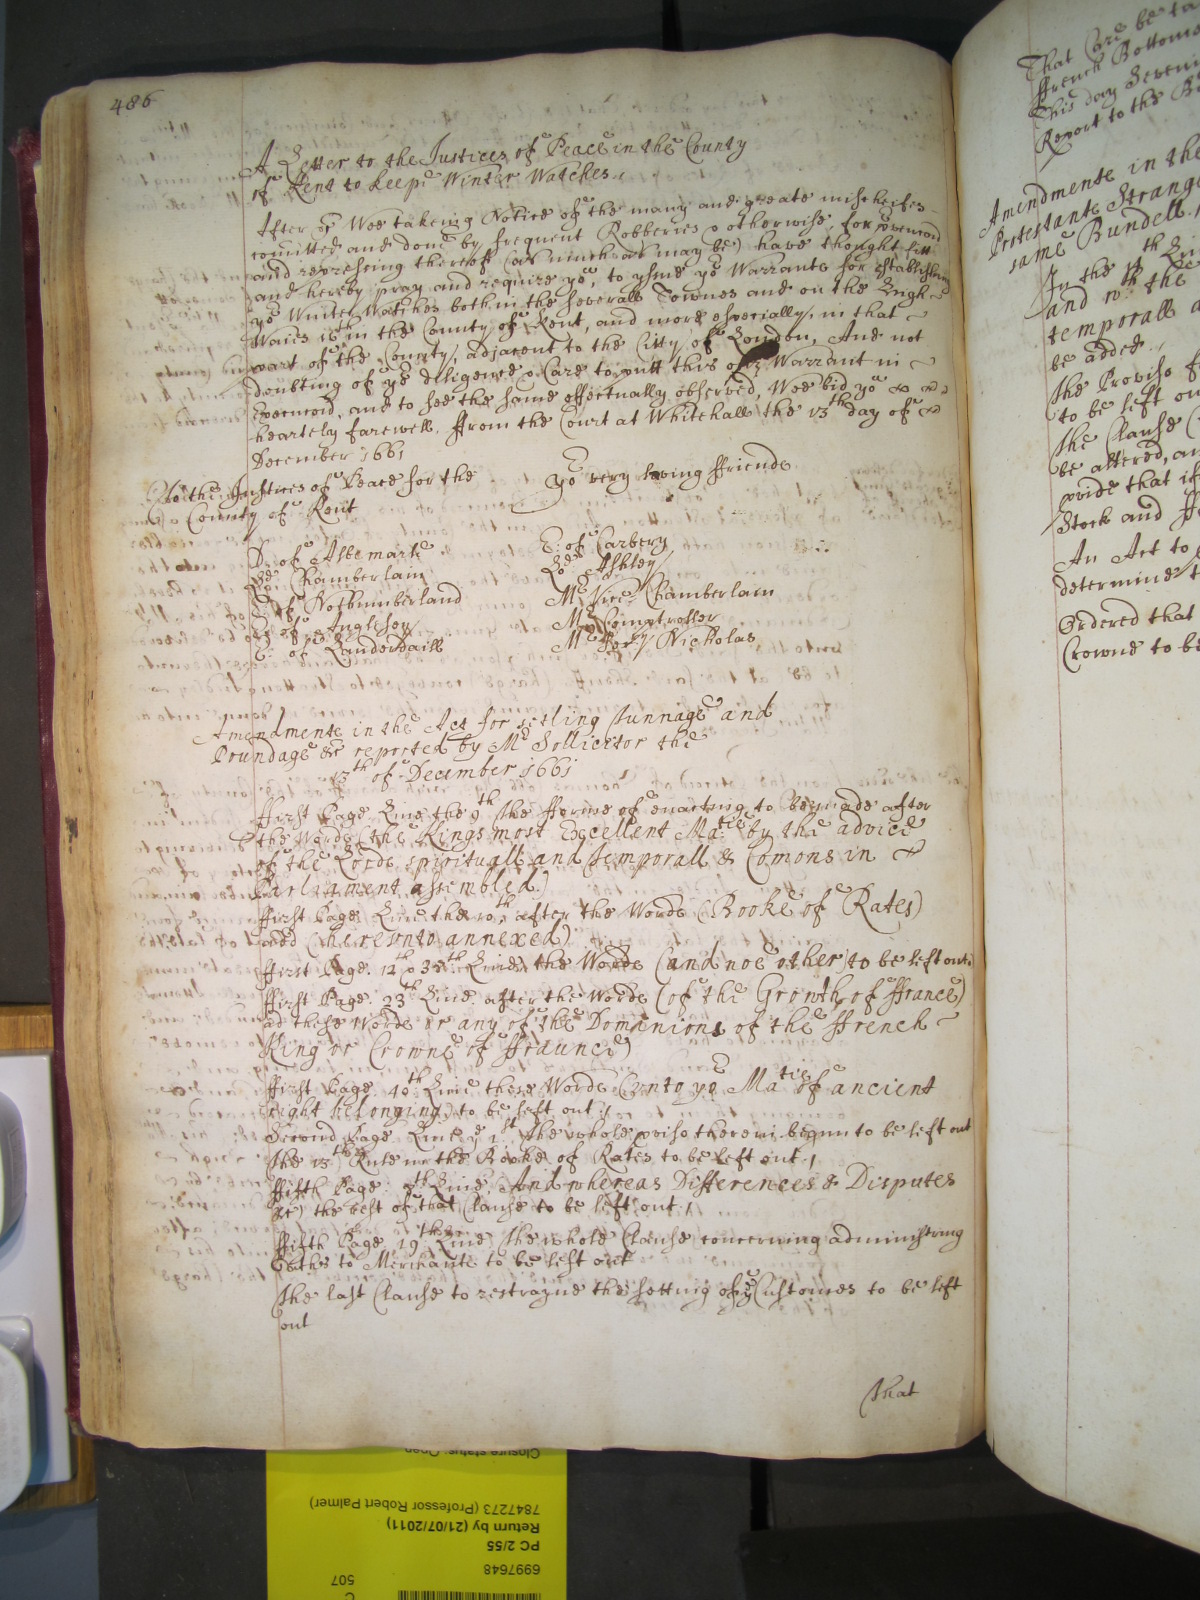 486
A Letter to the Justices of Peace in the County
of Kent to keepe Winter Watches
After or Wee takeing Notice of the many and greate mischeifes
comitted and done by frequent Robberies & otherwise, for prevencon
and repressing thereof (as much as may be) have thought fitt
and hereby pray and require yu, to your Warrants for establishing
ye Winter Watches both in the severall Townes and on the High
Waies in the County of Kent, and more especially, in that
part of the County, adjacent to the Citty of London, And not
doubting of yor diligence & Care to putt this our Warrant in
Execucon, and to see the same effectually observed, Wee bid yu
heartely farewell. ffrom the Court at Whitehall the 13th day of
December 1661
To the Justices of Peace for the
County of Kent
yor very loving ffriends
D. of Albemarle
Ld Chamberlain
E. of Northumberland
E. of Anglisey
E. of Lauderdaill
E. of Carbery
Ld Ashley
Mr Vice Chamberlain
Mr Comptroller
Mr Secry Nicholas
Amendments in the Act for setling Tunnage and
Poundage &c reported by Mr Sollicitor the
13th of December 1661
ffirst Page Line the 9th The fforme of enacting to be made after
the Words (the Kings most Excellent Matie by the advice
of the Lords spirituall and Temporall & Comons in
Parliament assembled)
ffirst Page Line the 10th after the Words (Booke of Rates)
add (hereunto annexed)
ffirst Page. 12th & 38th Lines the Words (and noe other) to be left out
ffirst Page. 23th Line after the Words (of the Growth of ffrance)
ad these Words or any of the Dominions of the ffrench
King or Crowne of ffraunce)
ffirst Page 40th Line these Words (unto yor Matie of ancient
right belonging) to be left out
Second Page Line ye 1st The whole proviso therein begun to be left out
The 13th Rule in the Booke of Rates to be left out
ffifth Page: Line (And whereas Differences & Disputes
&c) the rest of that Clause to be left out
ffifth Page 19th Line The whole Clause concerning administring
Oathes to Merchants to be left out
The last Clause to restrayne the setting of ye Customes to be left
out
That
That Care be ta
ffrench Bottoms
This day Seveni
Report to the
Amendments in the
Protestants Strang
same Bundell
In the 4th
and wth the
temporall a
be added
The Proviso f
to be left ou
The Clause
be altered, an
provide that if
Stock and
An Act to
determine t
Ordered that
Crowne to be
Closure status: Open
7847273 (Professor Robert Palmer)
Return by (21/07/2011)
PC 2/55
6997648
507
C